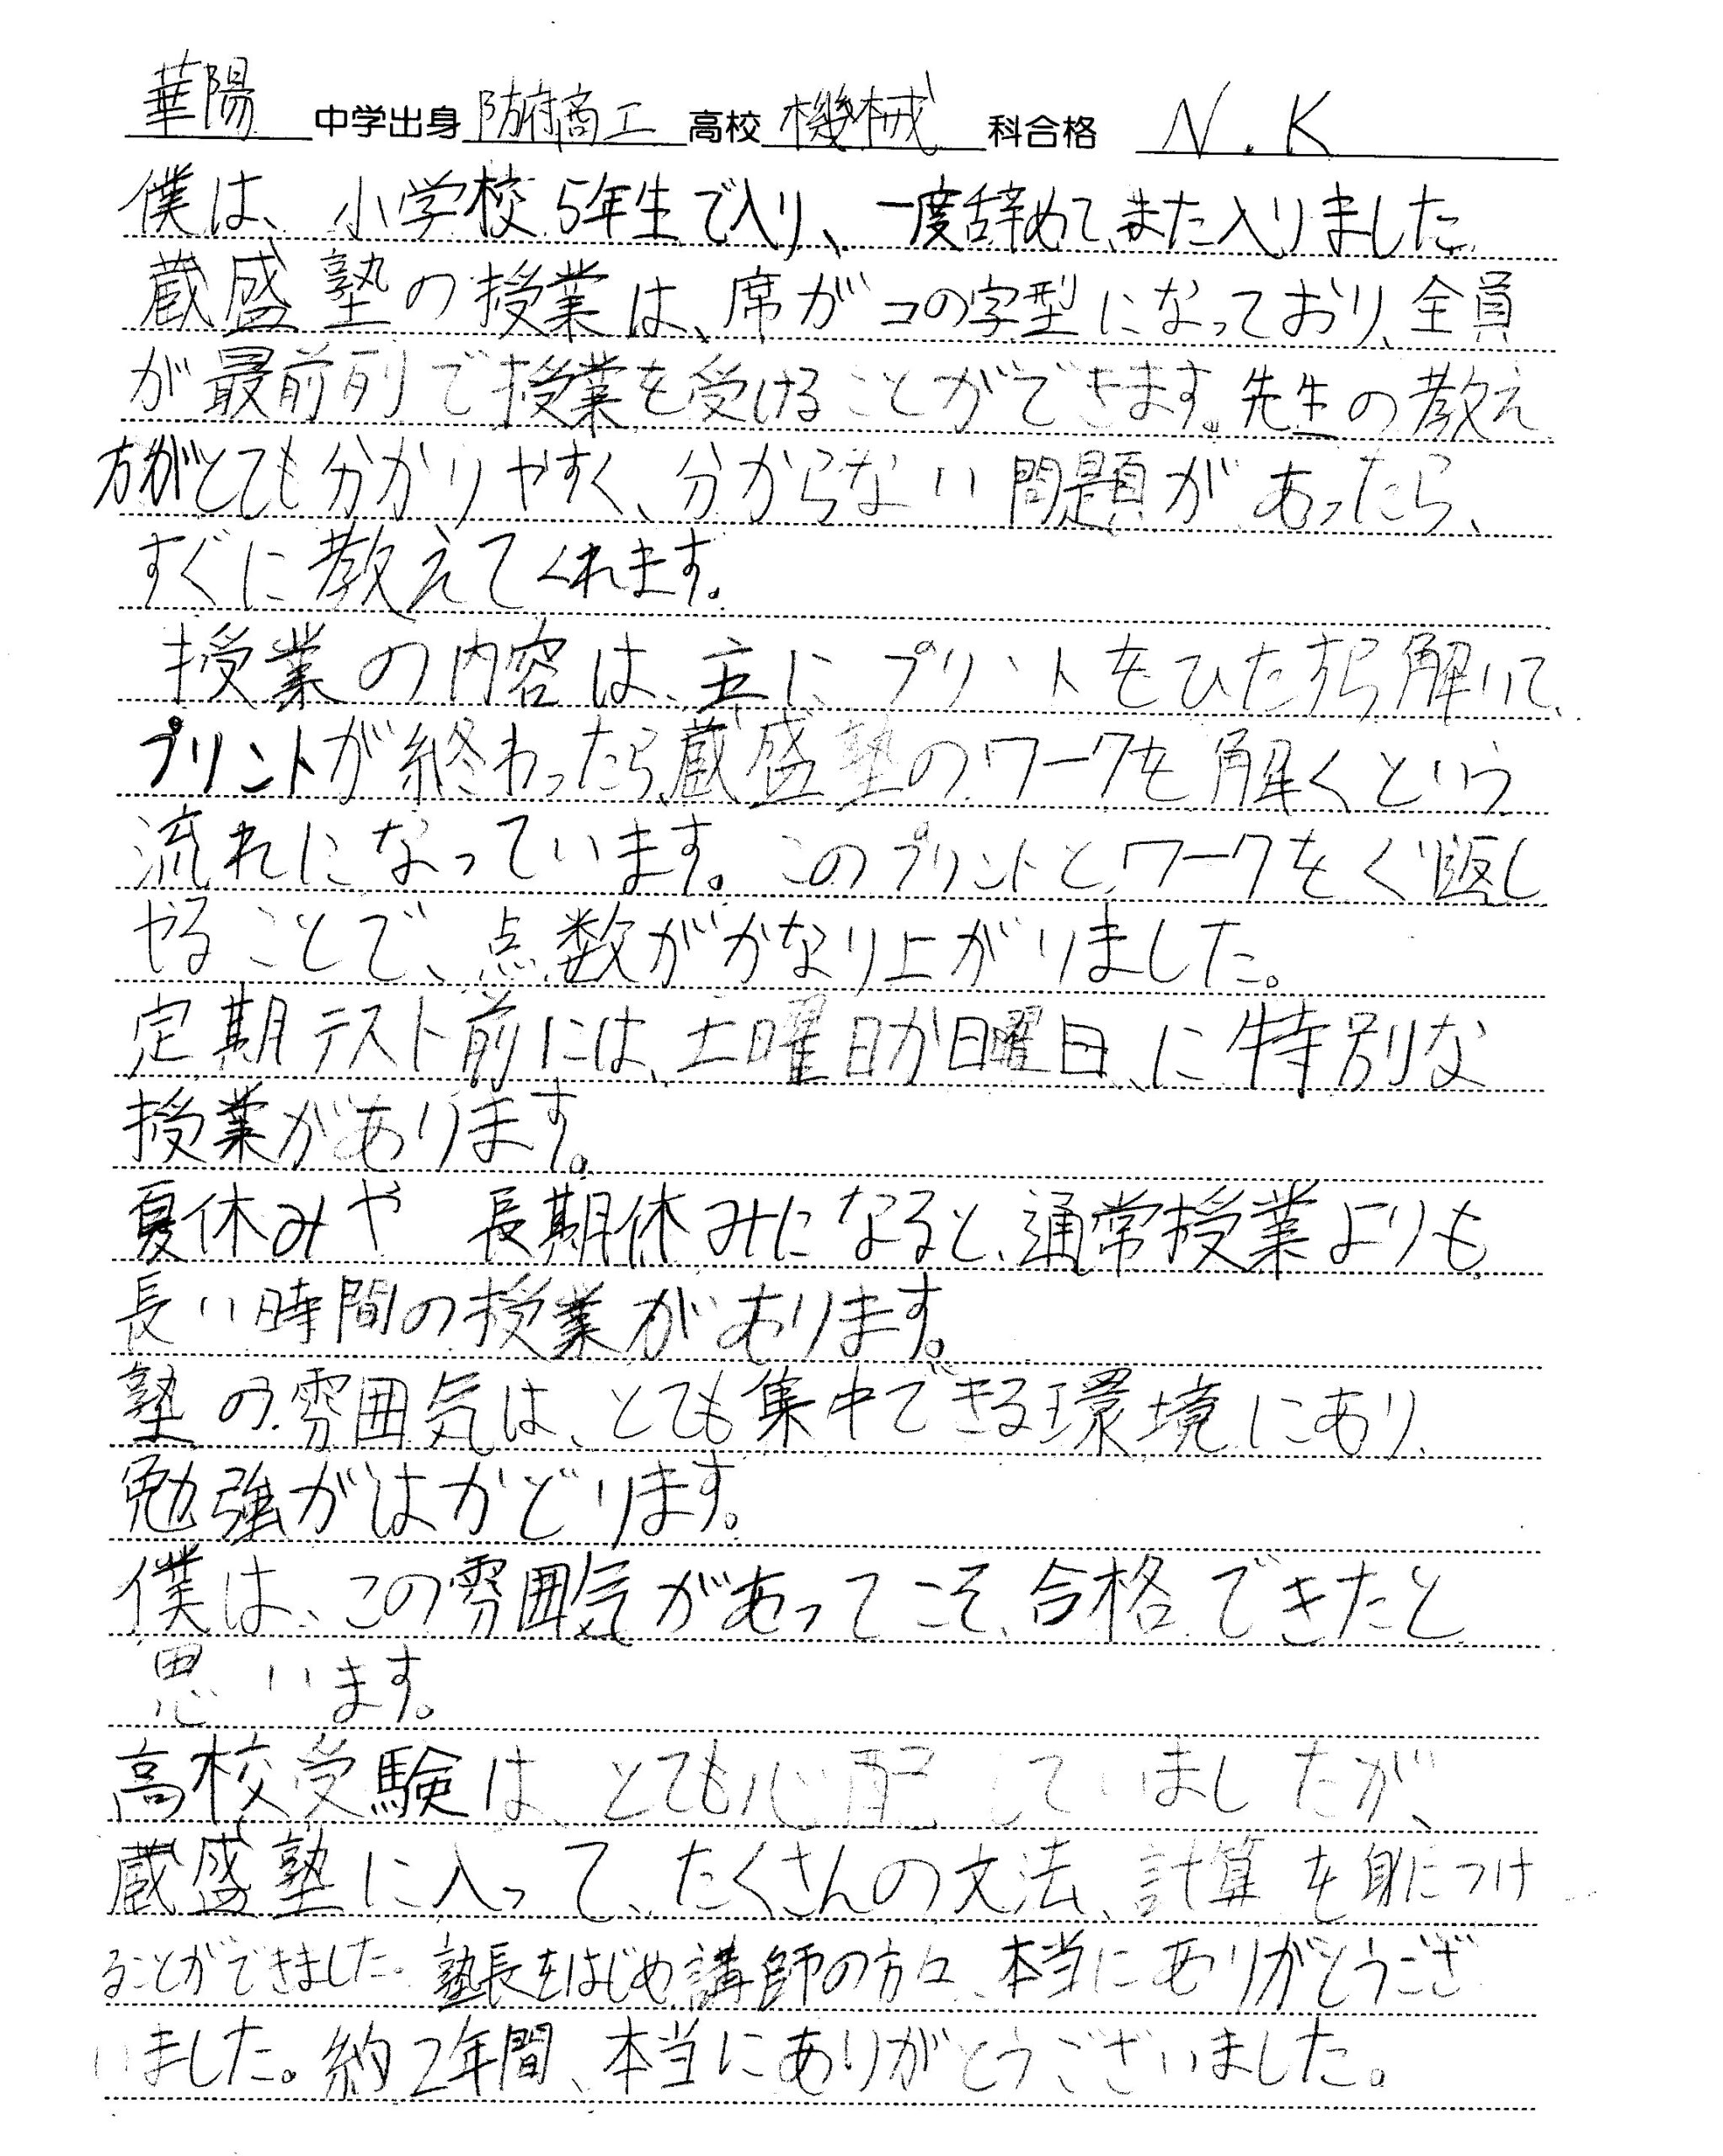 華陽 中学出身 防府商工 高校 機械 科合格 N.K
僕は、小学校5年生で入り、一度辞めて、また入りました。
蔵盛塾の授業は、席がコの字型になっており、全員
が最前列で授業を受けることができます。先生の教え
方がとても分かりやすく、分からない問題があったら、
すぐに教えてくれます。
授業の内容は、主にプリントをひたすら解いて、
プリントが終わったら、蔵盛塾のワークを解くという
流れになっています。このプリントとワークをくり返し
やることで、点数がかなり上がりました。
定期テスト前には、土曜日か日曜日、に特別な
授業があります。
夏休みや 長期休みになると、通常授業よりも
長い時間の授業があります。
塾の雰囲気は、とても集中できる環境にあり、
勉強がはかどります。
僕は、この雰囲気があってこそ、合格できたと
思います。
高校受験は、とても心配していましたが、
蔵盛塾に入って、たくさんの文法、計算を身につけ
ることができました。塾長をはじめ、講師の方々、本当にありがとうござ
いました。約2年間、本当にありがとうございました。